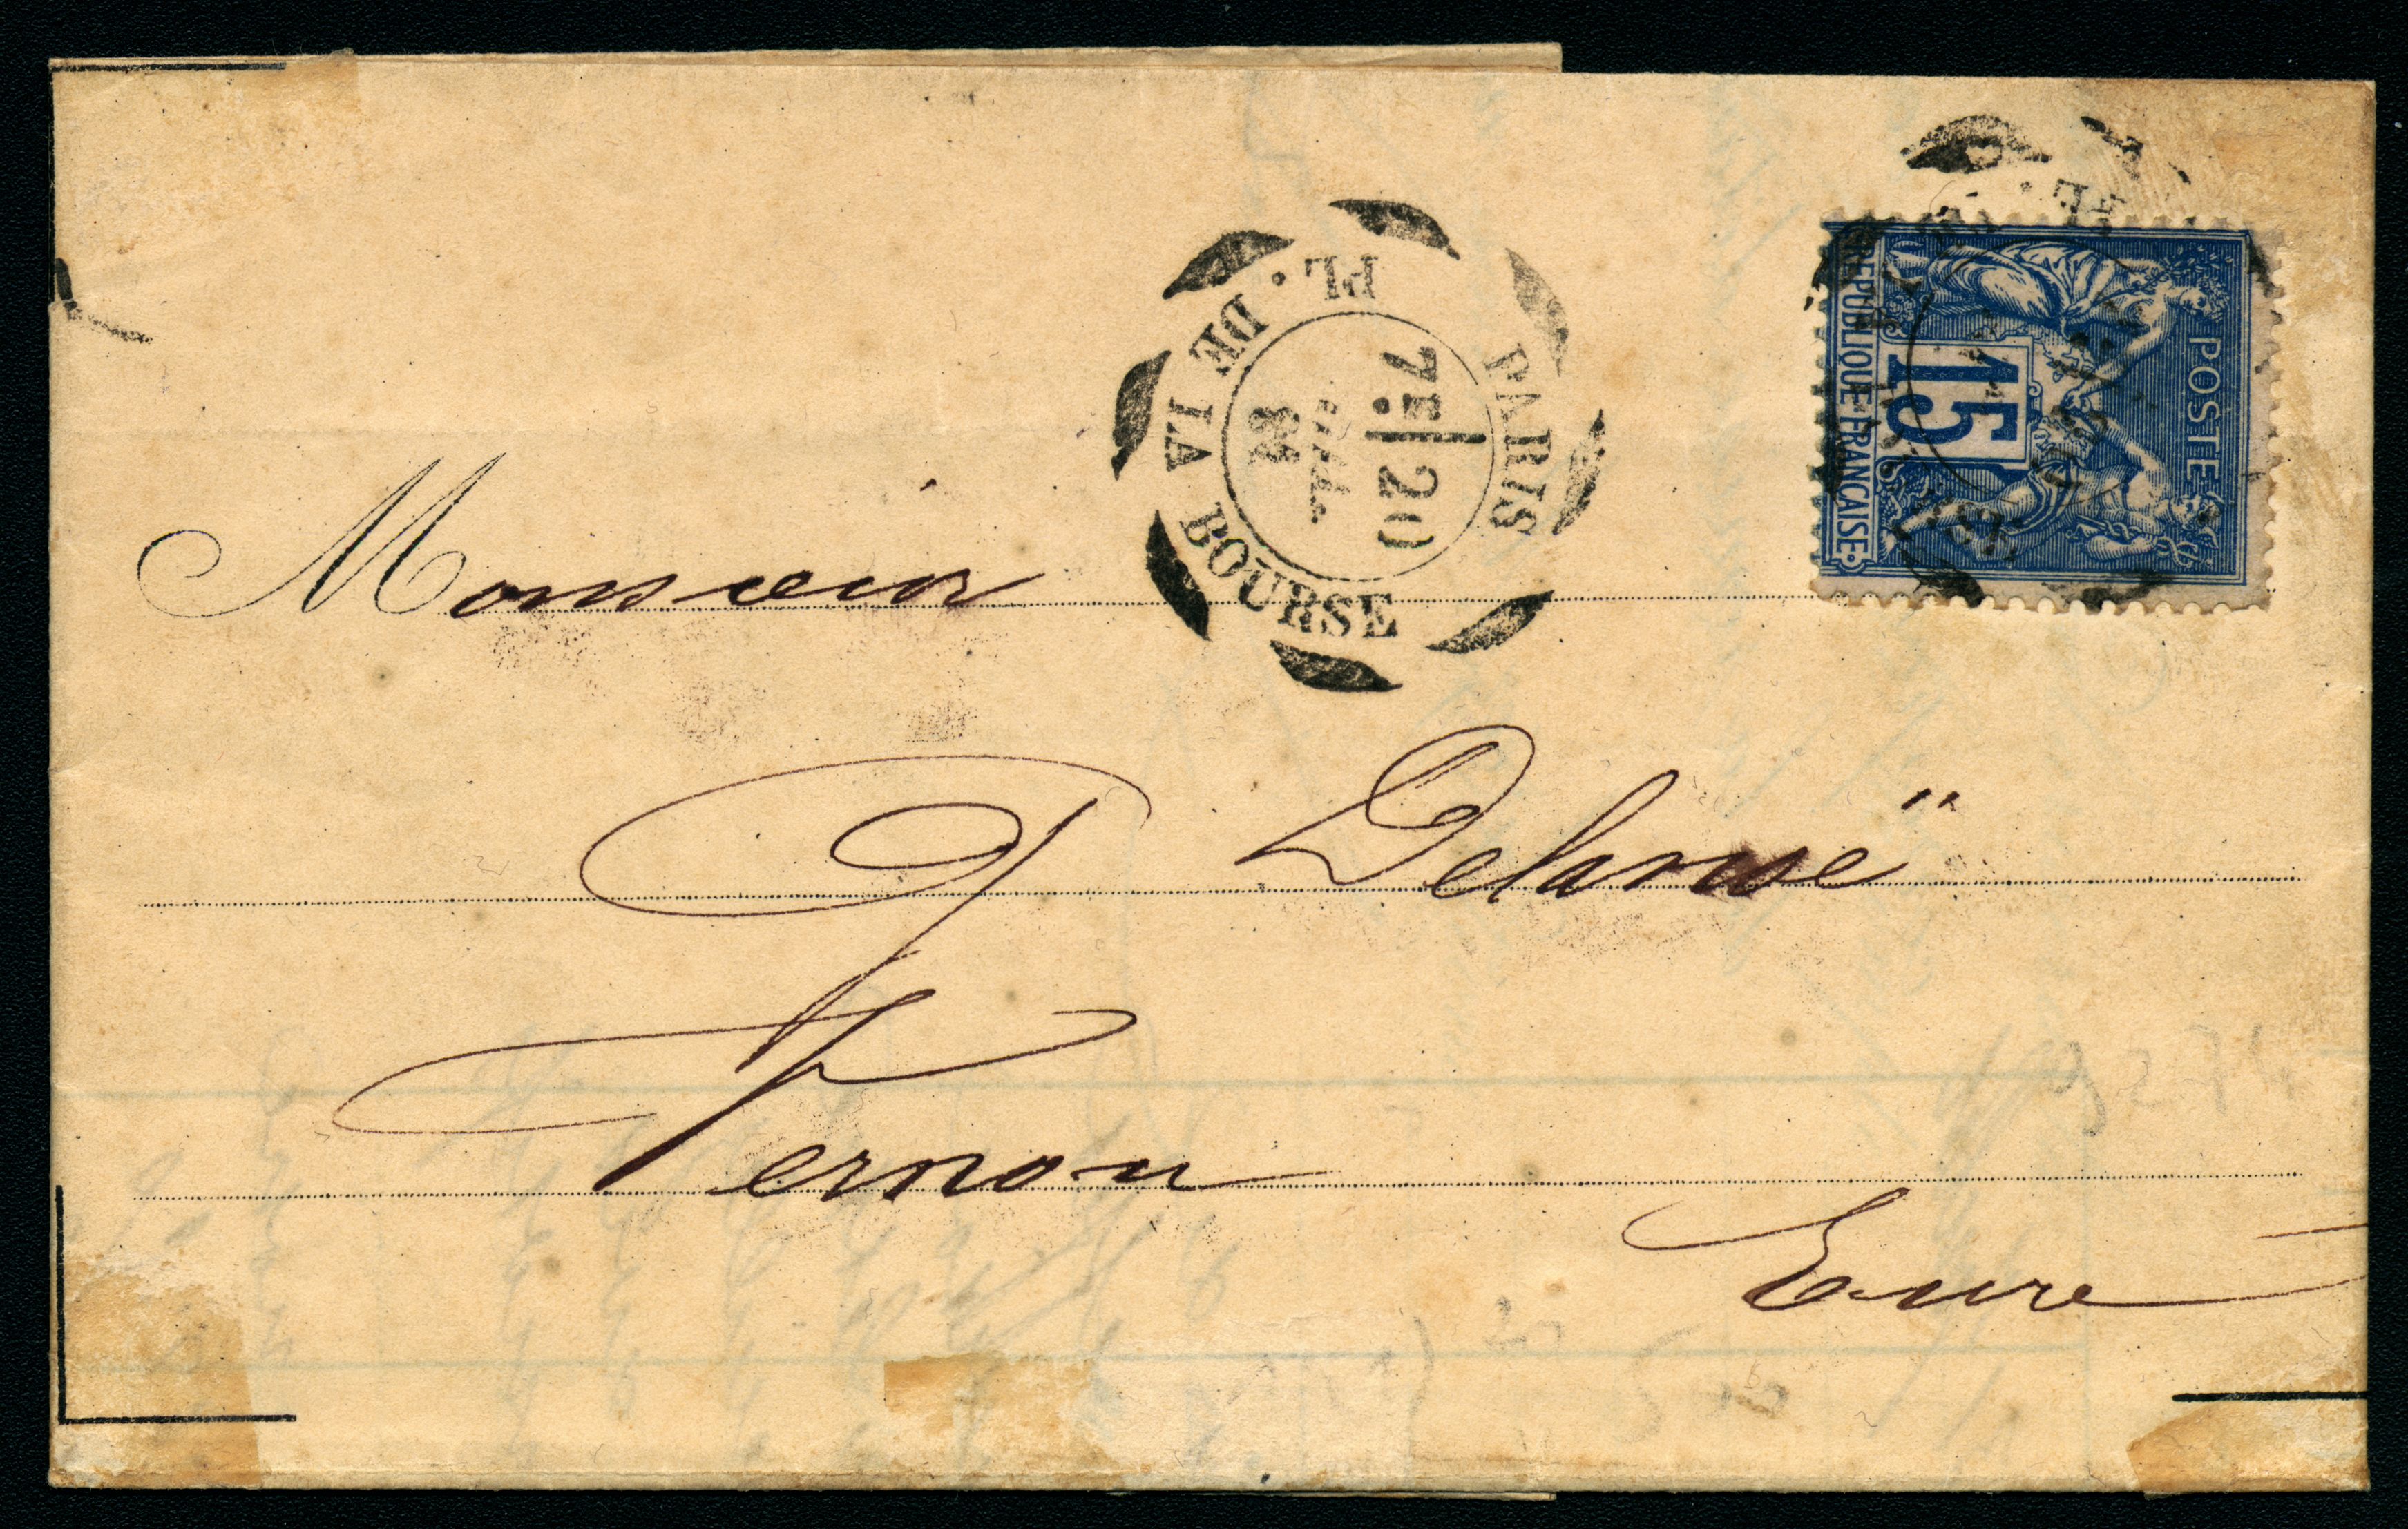 PARIS
PL. DE LA BOURSE
7E 20
84
POSTE
15
REPUBLIQUE FRANCAISE
Monsieur
Delarue
Vernon
Eure